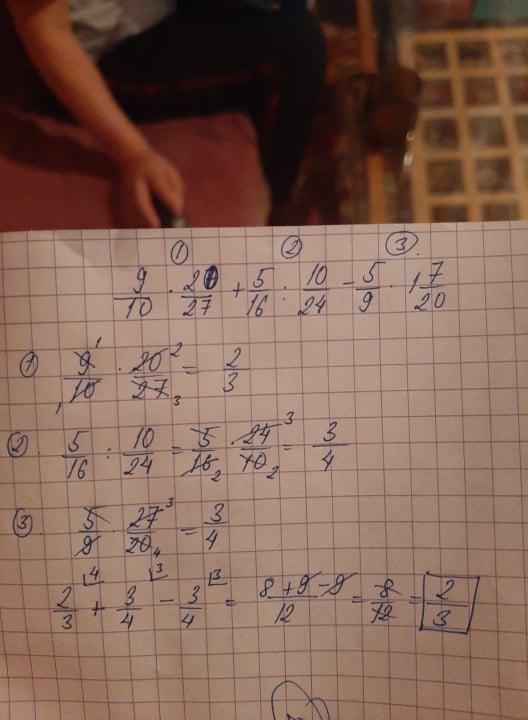 ① ② ③.
9/10 · 20/27 + 5/16 : 10/24 - 5/9 · 1 7/20
① 9/10 ¹ ₁ · 20/27 ² ₃ = 2/3
②. 5/16 : 10/24 = 5/16 ₂ · 24/10 ³ ₂ = 3/4
③. 5/9 · 27/20 ³ ₄ = 3/4
2/3 ⁴ + 3/4 ³ - 3/4 ³ = 8+9-9/12 = 8/12 = 2/3